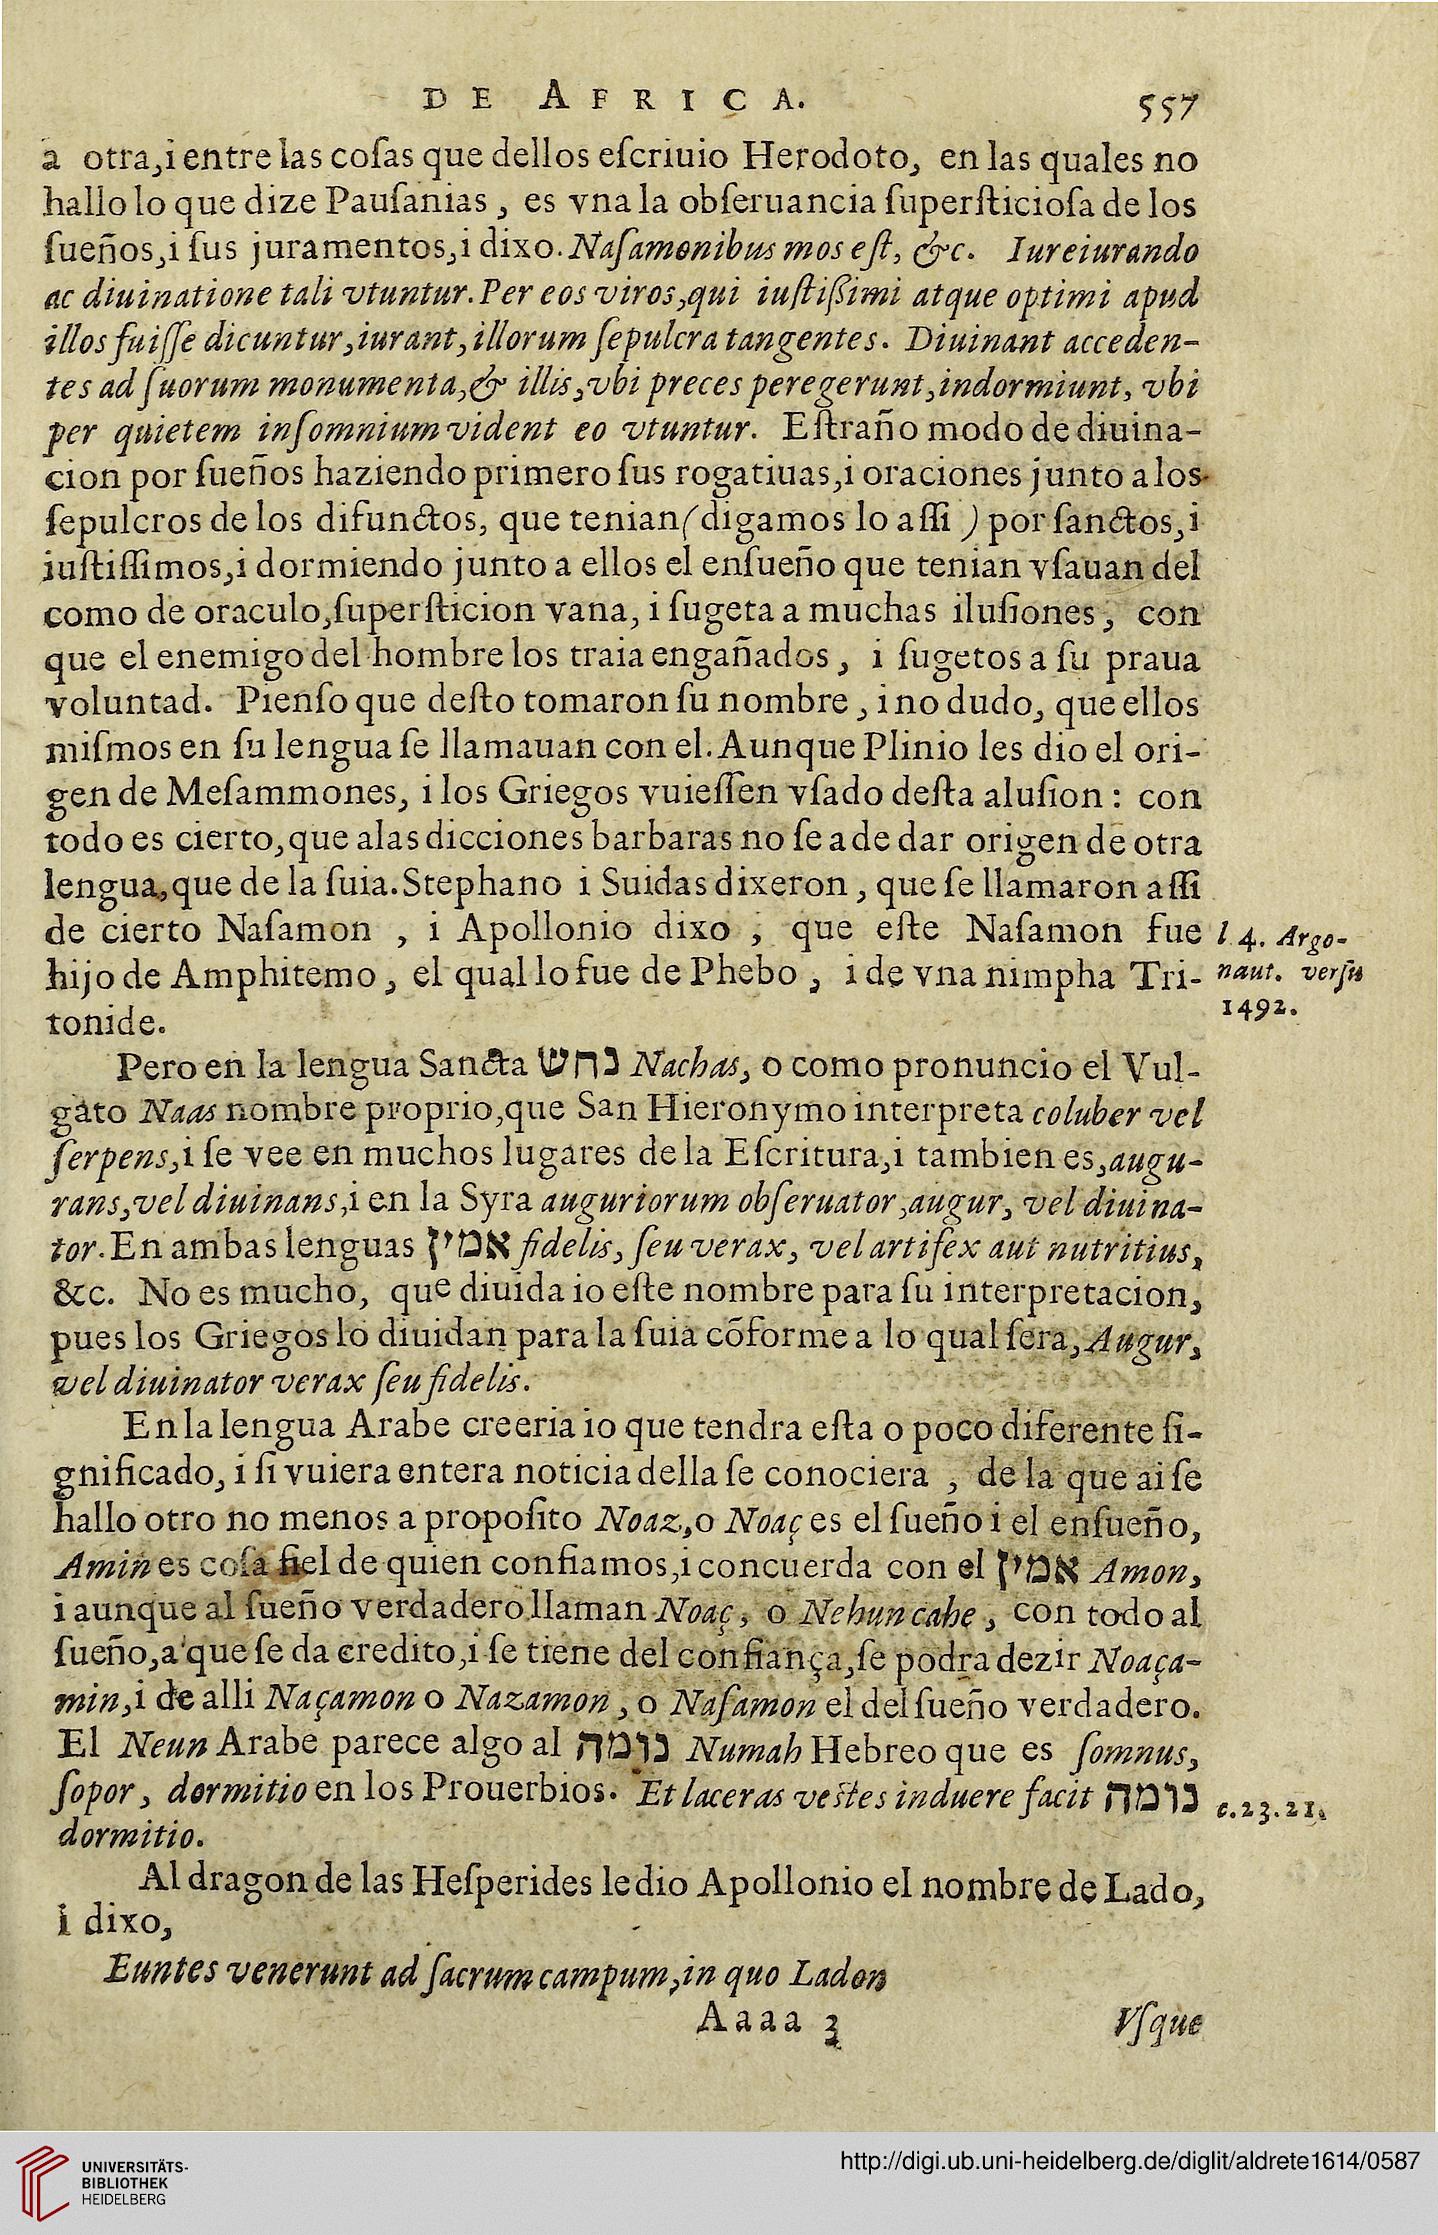 DE AFRICA. 557
a otra,i entre las coſas que dellos eſcriuio Herodoto, en las quales no
hallo lo que dize Pauſanias, es vna la obſeruancia ſuperſticioſa de los
ſueños,i ſus juramentos,i dixo. Naſamonibus mos eſt, &c. Iureiurando
ac diuinatione tali vtuntur. Per eos viros,qui iuſtißimi atque optimi apud
illos fuiſſe dicuntur,iurant,illorum ſepulcra tangentes. Diuinant acceden-
tes ad ſuorum monumenta,& illis,vbi preces peregerunt,indormiunt, vbi
per quietem inſomnium vident eo vtuntur. Eſtraño modo de diuina-
cion por ſueños haziendo primero ſus rogatiuas,i oraciones junto a los
ſepulcros de los difunctos, que tenian (digamos lo aſſi ) por ſanctos,i
iuſtiſſimos,i dormiendo junto a ellos el enſueño que tenian vſauan del
como de oraculo,ſuperſticion vana, i ſugeta a muchas iluſiones, con
que el enemigo del hombre los traia engañados, i ſugetos a ſu praua
voluntad. Pienſo que deſto tomaron ſu nombre, i no dudo, que ellos
miſmos en ſu lengua ſe llamauan con el. Aunque Plinio les dio el ori-
gen de Meſammones, i los Griegos vuieſſen vſado deſta aluſion: con
todo es cierto,que a las dicciones barbaras no ſe a de dar origen de otra
lengua,que de la ſuia. Stephano i Suidas dixeron, que ſe llamaron aſſi
de cierto Naſamon , i Apollonio dixo , que eſte Naſamon fue
l 4. Argo-
hijo de Amphitemo, el qual lo fue de Phebo, i de vna nimpha Tri-
naut. verſu
tonide.
1492.
Pero en la lengua Sancta נחש Nachas, o como pronuncio el Vul-
gato Naas nombre proprio,que San Hieronymo interpreta coluber vel
ſerpens,i ſe vee en muchos lugares de la Eſcritura,i tambien es,augu-
rans,vel diuinans,i en la Syra auguriorum obſeruator,augur, vel diuina-
tor. En ambas lenguas אמין fidelis, ſeu verax, vel artifex aut nutritius,
&c. No es mucho, que diuida io eſte nombre para ſu interpretacion,
pues los Griegos lo diuidan para la ſuia cõforme a lo qual ſera, Augur,
vel diuinator verax ſeu fidelis.
En la lengua Arabe creeria io que tendra eſta o poco diferente ſi-
gnificado, i ſi vuiera entera noticia della ſe conociera , de la que ai ſe
hallo otro no menos a propoſito Noaz,o Noaç es el ſueño i el enſueño,
Amin es coſa fiel de quien confiamos,i concuerda con el אמין Amon,
i aunque al ſueño verdadero llaman Noaç, o Nehun cahe, con todo al
ſueño,a que ſe da credito,i ſe tiene del confiança,ſe podra dezir Noaça-
min,i de alli Naçamon o Nazamon, o Naſamon el del ſueño verdadero.
El Neun Arabe parece algo al נומה Numah Hebreo que es ſomnus,
ſopor, dormitio en los Prouerbios. Et laceras veſtes induere facit נומה
c.23.21.
dormitio.
Al dragon de las Heſperides le dio Apollonio el nombre de Lado,
i dixo,
Euntes venerunt ad ſacrum campum,in quo Ladon
Aaaa 3 Vſque
UNIVERSITÄTS-
BIBLIOTHEK
HEIDELBERG
http://digi.ub.uni-heidelberg.de/diglit/aldrete1614/0587